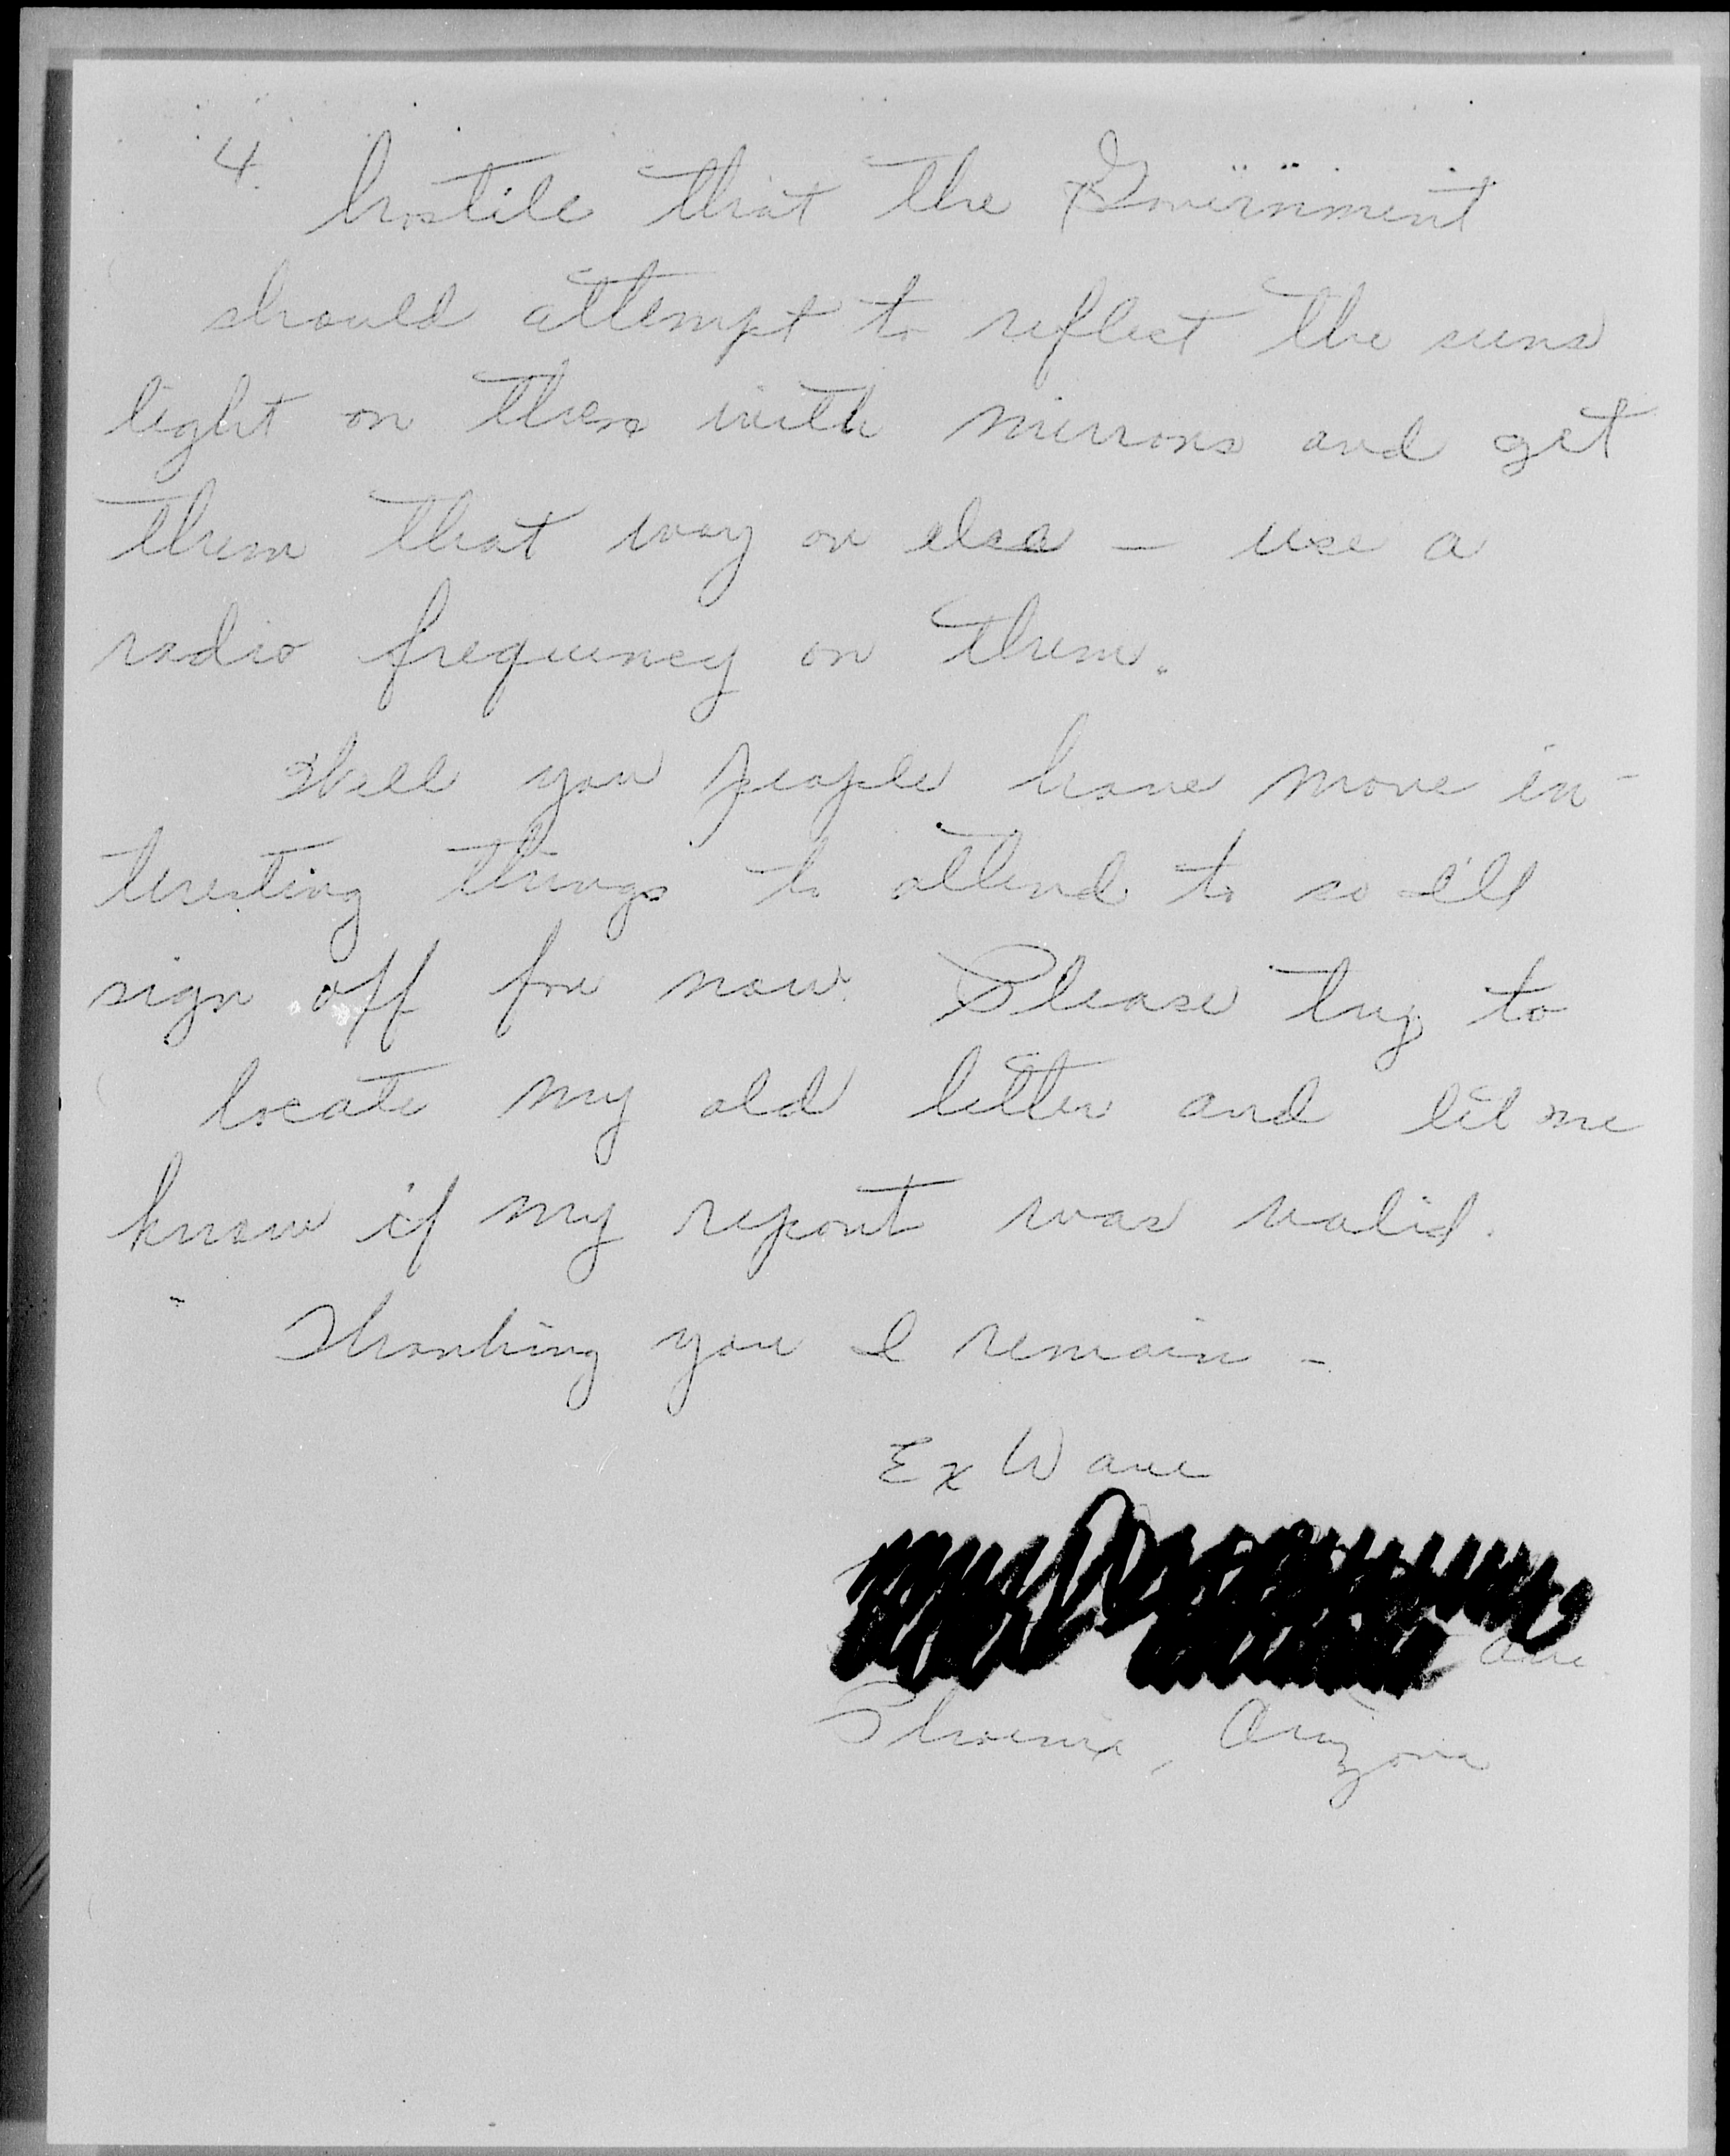 4.
hostile that the Government
should attempt to reflect the suns
light on them with mirrors and get
them that way or else — use a
radio frequency on them.
Well you people have more in-
teresting things to attend to so I'll
sign off for now. Please try to
locate my old letter and let me
know if my report was valid.
Thanking you I remain -
Ex Wave
Ave.
Phoenix, Arizona